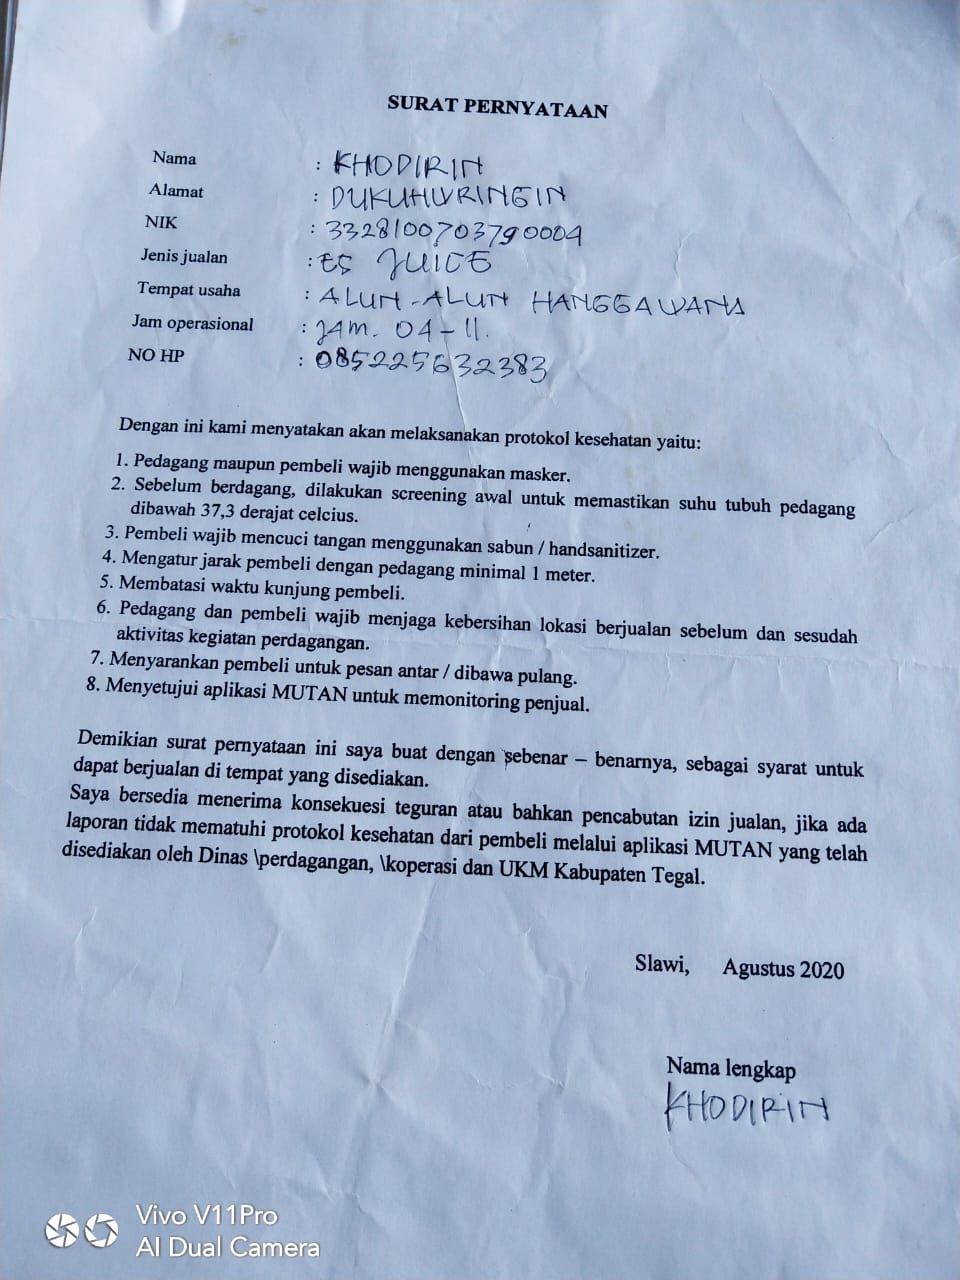 SURAT PERNYATAAN
Nama : KHODIRIN
Alamat : DUKUHWRINGIN
NIK : 3328100703790004
Jenis jualan : ES JUICE
Tempat usaha : ALUN-ALUN HANGGAWANA
Jam operasional : JAM. 04-11.
NO HP : 085225632383
Dengan ini kami menyatakan akan melaksanakan protokol kesehatan yaitu:
1. Pedagang maupun pembeli wajib menggunakan masker.
2. Sebelum berdagang, dilakukan screening awal untuk memastikan suhu tubuh pedagang
dibawah 37,3 derajat celcius.
3. Pembeli wajib mencuci tangan menggunakan sabun / handsanitizer.
4. Mengatur jarak pembeli dengan pedagang minimal 1 meter.
5. Membatasi waktu kunjung pembeli.
6. Pedagang dan pembeli wajib menjaga kebersihan lokasi berjualan sebelum dan sesudah
aktivitas kegiatan perdagangan.
7. Menyarankan pembeli untuk pesan antar / dibawa pulang.
8. Menyetujui aplikasi MUTAN untuk memonitoring penjual.
Demikian surat pernyataan ini saya buat dengan sebenar – benarnya, sebagai syarat untuk
dapat berjualan di tempat yang disediakan.
Saya bersedia menerima konsekuesi teguran atau bahkan pencabutan izin jualan, jika ada
laporan tidak mematuhi protokol kesehatan dari pembeli melalui aplikasi MUTAN yang telah
disediakan oleh Dinas \perdagangan, \koperasi dan UKM Kabupaten Tegal.
Slawi, Agustus 2020
Nama lengkap
KHODIRIN
Vivo V11Pro
AI Dual Camera